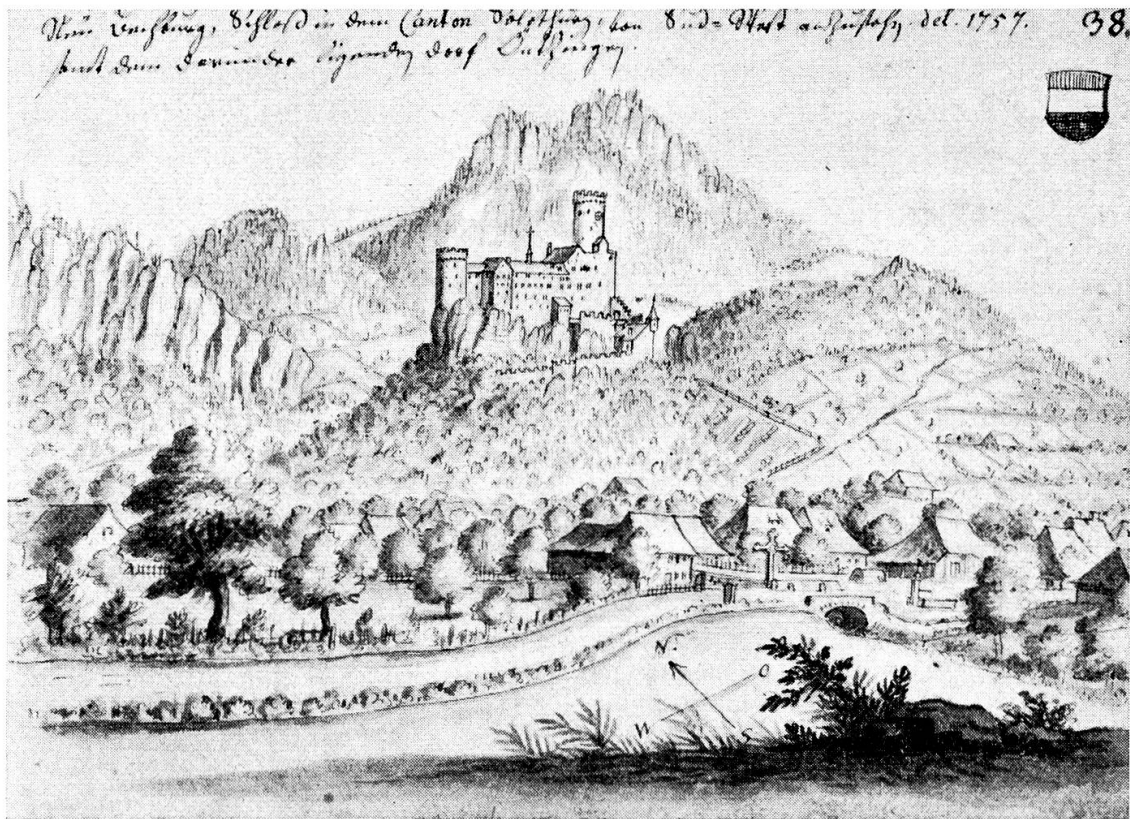 Neu Bechburg, Schloß in dem Canton Solothurn, von Süd-West anzusehen. del. 1757. 38.
samt dem darunder ligenden dorf
N.
O
W
S